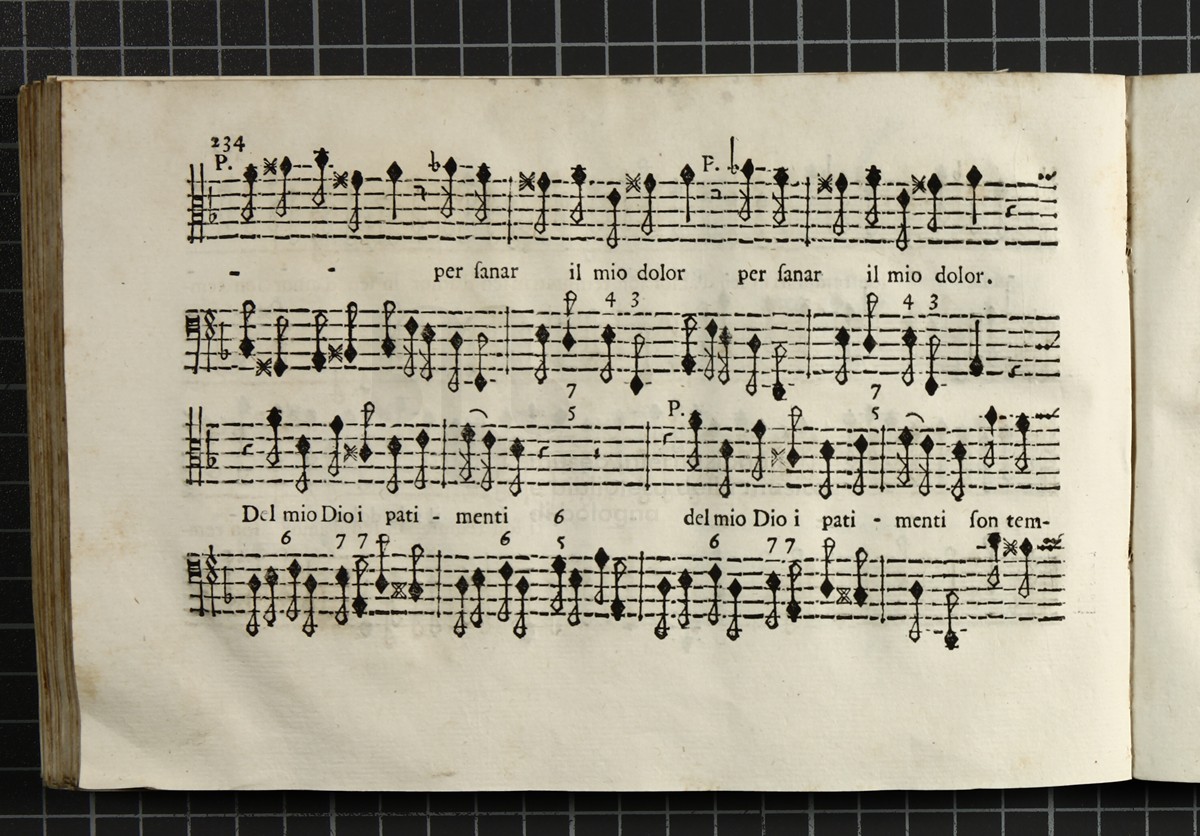 234
P. P.
- - per ſanar il mio dolor per ſanar il mio dolor.
4 3 4 3
7 7
5 P. 5
Del mio Dio i pati - menti 6 del mio Dio i pati - menti ſon tem-
6 7 7 6 5 6 7 7